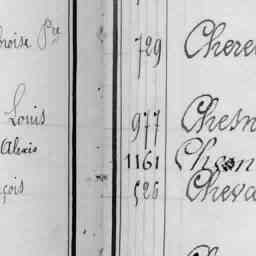 noise Pre 729 Chere
Louis 977 Chesn
Alexis 1161 Chesn
çois 526 Cheva